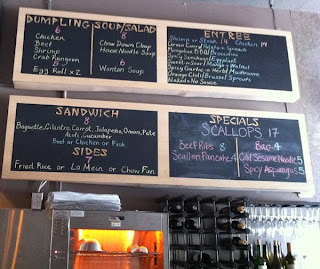 DUMPLING
6
Chicken
Beef
Shrimp
Crab Rangoon
5
Egg Roll x2
SOUP/SALAD
8
Chow Down Chop
House Noodle Soup
6
Wonton Soup
ENTREE
Shrimp or Steak 14 Chicken 14
Green Curry Potato + Spinach
Mongolian BBQ Broccolini
Spicy Szechuan Eggplant
Sweet + Sour Walnut
Spicy Garlic + Herb Mushrooms
Orange Chili Brussel Sprouts
Naked: No Sauce
SANDWICH
8
Baguette, Cilantro, Carrot, Jalapeño, Onion, Pate
Aioli, Cucumber
Beef or Chicken or Pork
SIDES
7
Fried Rice or Lo Mein or Chow Fun
SPECIALS
SCALLOPS 17
Beef Ribs 8
Scallion Pancake 4
Bao 4
Cold Sesame Noodle 5
Spicy Asparagus 5